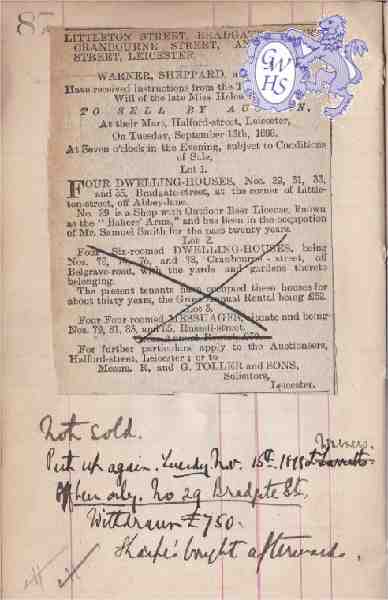 85
LITTLETON STREET, BRADGATE
CRANBOURNE STREET, AN
STREET, LEICESTER.
GWHS
WARNER, SHEPPARD, a
Have received instructions from the T
Will of the late Miss Helen
TO SELL BY AUCTION,
At their Mart, Halford-street, Leicester,
On Tuesday, September 13th, 1898,
At Seven o'clock in the Evening, subject to Conditions
of Sale,
Lot 1.
FOUR DWELLING-HOUSES, Nos. 29, 31, 33,
and 35, Bradgate-street, at the corner of Little-
ton-street, off Abbey-lane.
No. 29 is a Shop with Outdoor Beer License, known
as the "Bakers' Arms," and has been in the occupation
of Mr. Samuel Smith for the past twenty years.
Lot 2.
Four Six-roomed DWELLING-HOUSES, being
Nos. 72, 76, and 78, Cranbourne-street, off
Belgrave-road, with the yards and gardens thereto
belonging.
The present tenants have occupied these houses for
about thirty years, the Gross Annual Rental being £52.
Lot 3.
Four Four-roomed MESSUAGES, situate and being
Nos. 79, 81, 83, and 85, Russell-street.
Gross Annual Rental,
For further particulars apply to the Auctioneers,
Halford-street, Leicester; or to
Messrs. R. and G. TOLLER and SONS,
Solicitors,
Leicester.
Not sold.
Put up again. Tuesday Nov. 15th 1898
Offer only. No 29 Bradgate St.
Withdrawn £750.
Sharpe's bought afterwards.